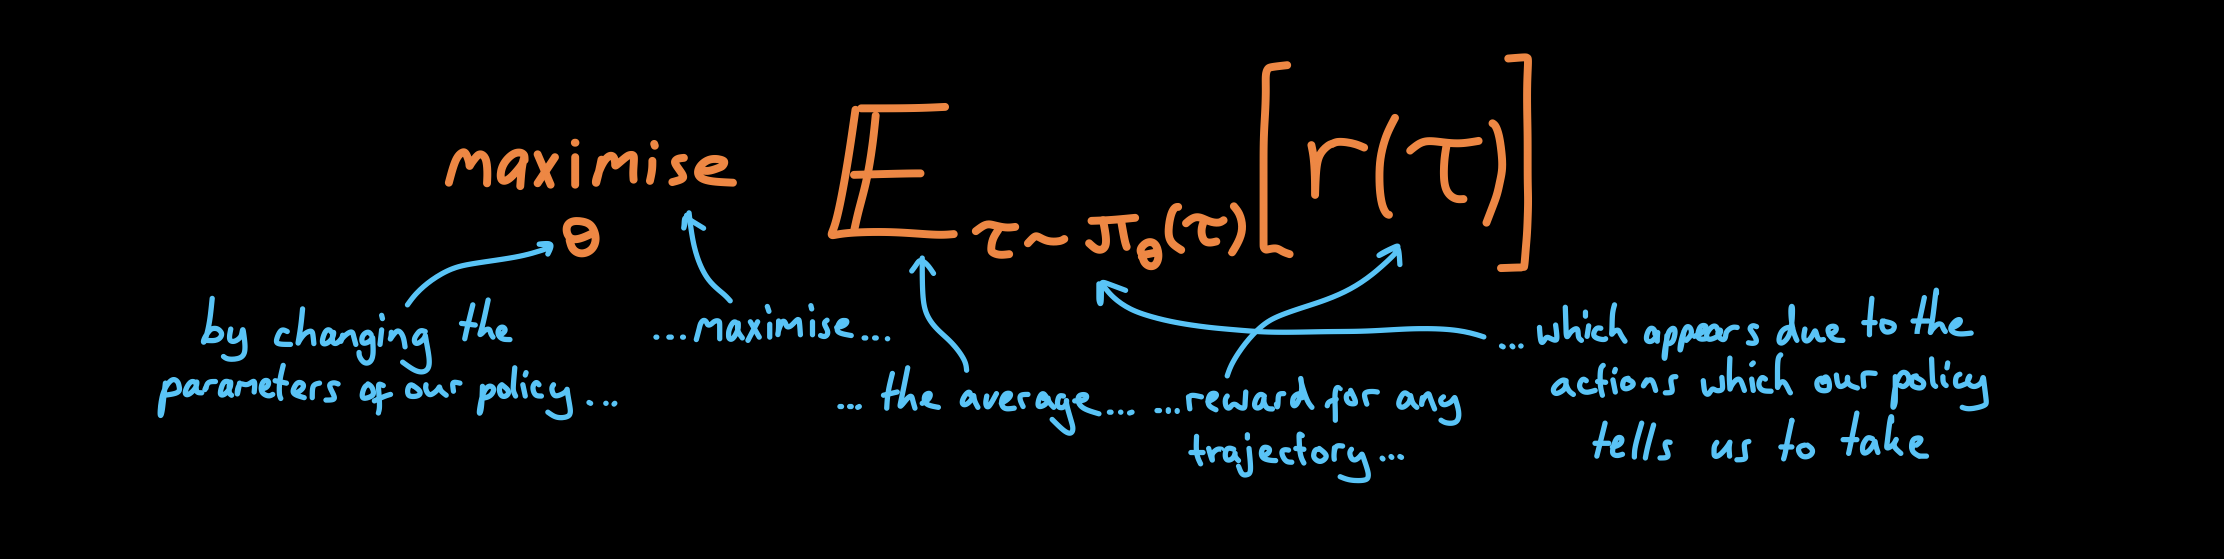 maximise 𝔼 τ ~ π_θ(τ) [r(τ)]
θ
by changing the
parameters of our policy...
...maximise...
... the average....
...reward for any
trajectory...
...which appears due to the
actions which our policy
tells us to take